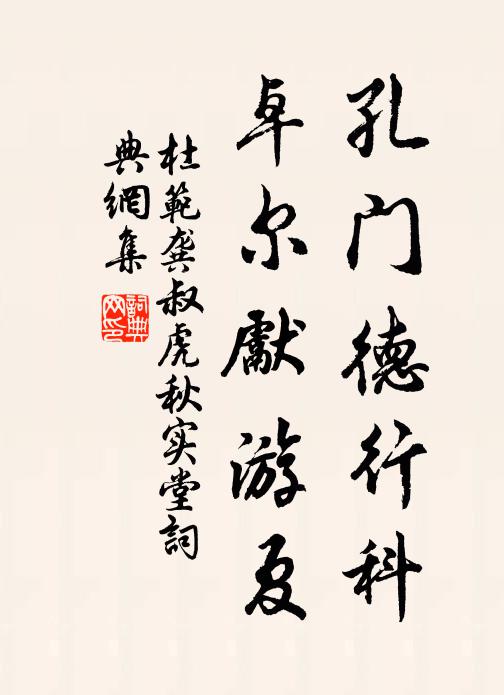 孔门德行科
卓尔獻游夏
杜範龚叔虎秋实堂詞
典網集
詞典
网印